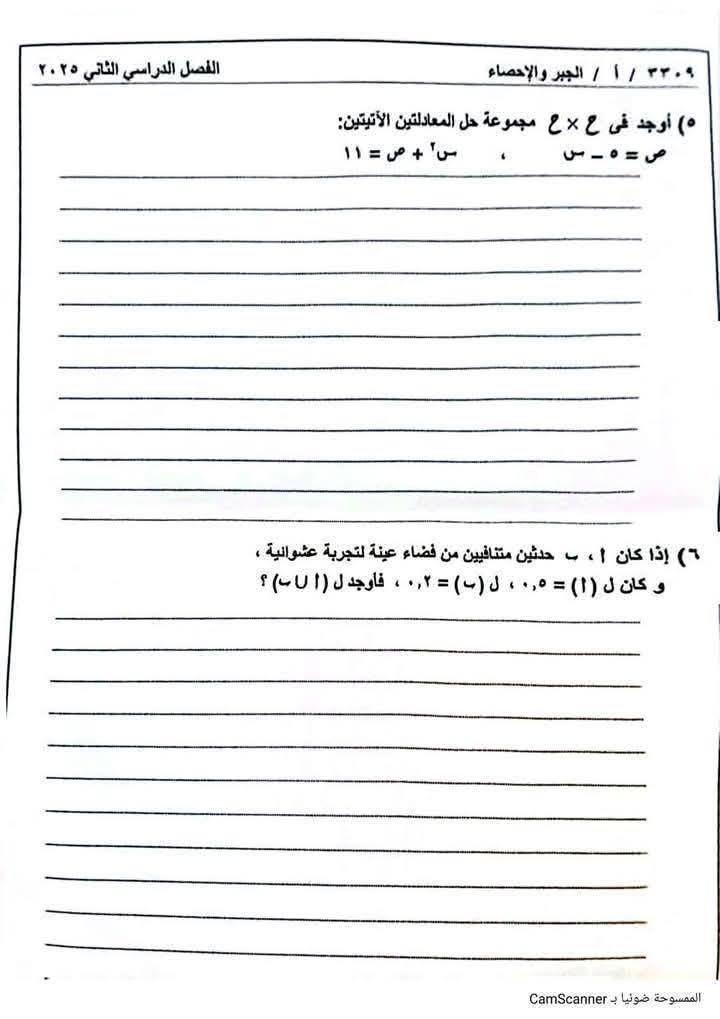 ٣٣٠٩ / أ / الجبر والإحصاء الفصل الدراسي الثاني ٢٠٢٥
٥) أوجد فى ح × ح مجموعة حل المعادلتين الآتيتين:
ص = ٥ – س ، س٢ + ص = ١١
٦) إذا كان ا ، ب حدثين متنافيين من فضاء عينة لتجربة عشوائية ،
و كان ل (ا) = ٠,٥ ، ل (ب) = ٠,٢ ، فأوجد ل (ا ∪ ب) ؟
الممسوحة ضوئيا بـ CamScanner